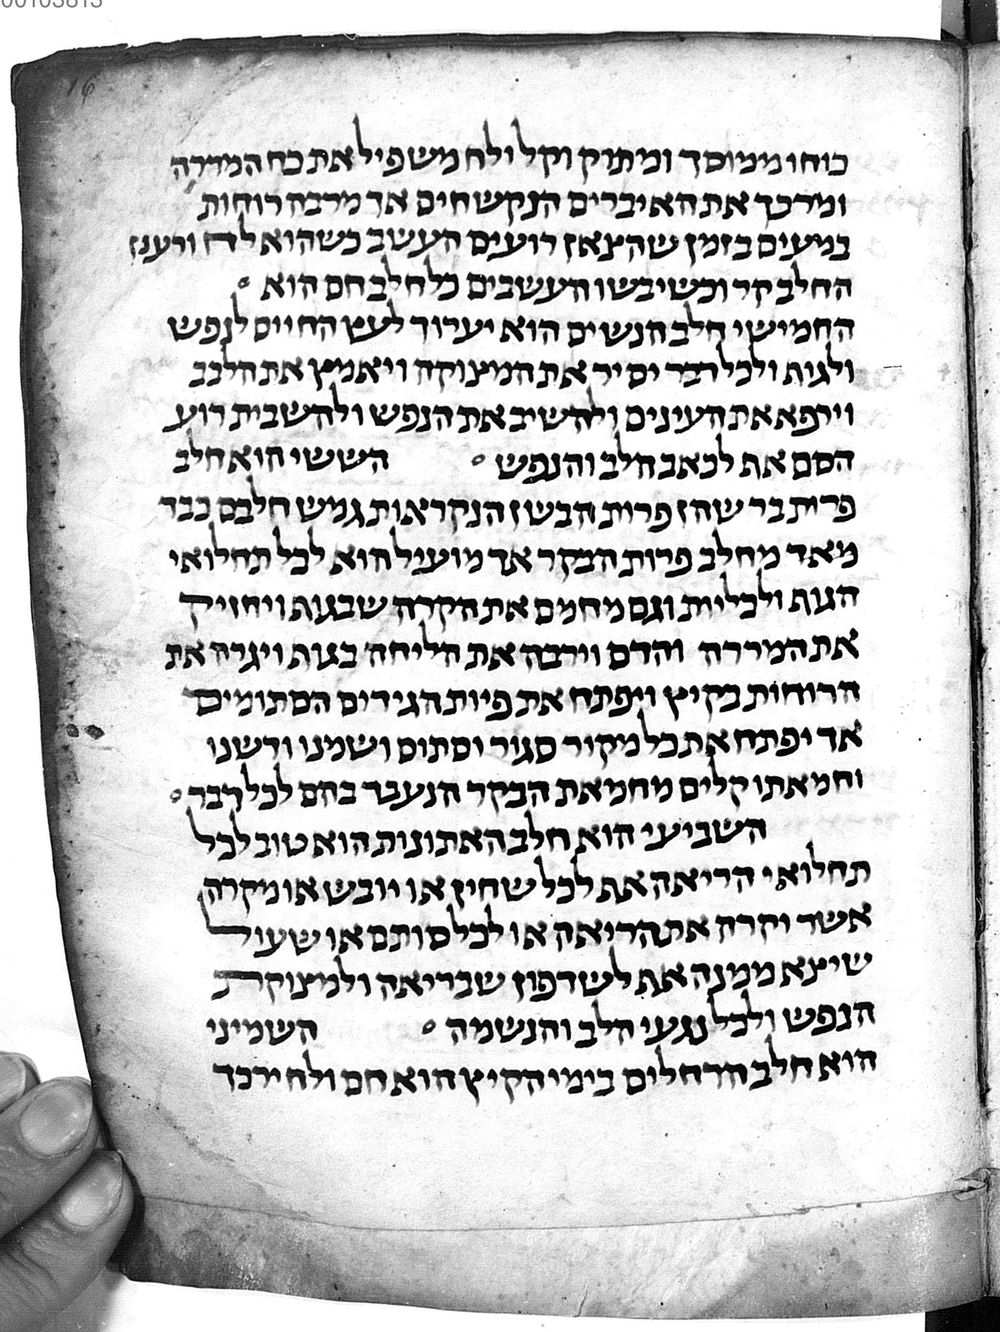 00103813
16
כוחו ממוסך ומיתוק וקל ולח משפיל את כח המררה
ומרכך את האיברים הנקשחים אך מרבה רוחות
במעים בזמן שהצאן רועים העשב כשהוא לח ורענן
החלב קר וכשיבשו העשבים כל חלב חם הוא
החמישי חלב הנשים הוא יערוך לעץ החיים לנפש
ולגות ולכל דבר יסיר את המצוקה ויאמץ את הלבב
וירפא את העינים ולהשיב את הנפש ולהשבית רוע
הסם את לכאב חלב והנפש השישי הוא חלב
פרות בר שהן פרות הבשן הנקראות גמש חלבם כבד
מאד מחלב פרות הבקר אך מועיל הוא לכל תחלואי
הגוף ולכליות וגם מחמם את הקרה שבגות ויחזיק
את המררה והדם וירבה את הליחה בגות ויגרה את
הרוחות בקיץ ויפתח את פיות הגידים הסתומים
אד יפתח את כל מקור סגור וסתום ושמנו ודשנו
וחמאתו קלים מחמאת הבקר הנעבר בהם לכל דבר
השביעי הוא חלב האתונות הוא טוב לכל
תחלואי הריאה את לכל שחין או יובש או מקרה
אשר יקרה את הריאה או לכל סותם או שעול
שיצא ממנה את לשדפון שבריאה ולמצוקת
הנפש ולכל נגעי הלב והנשמה השמיני
הוא חלב הרחלים בימי הקיץ הוא חם ולח ירכך